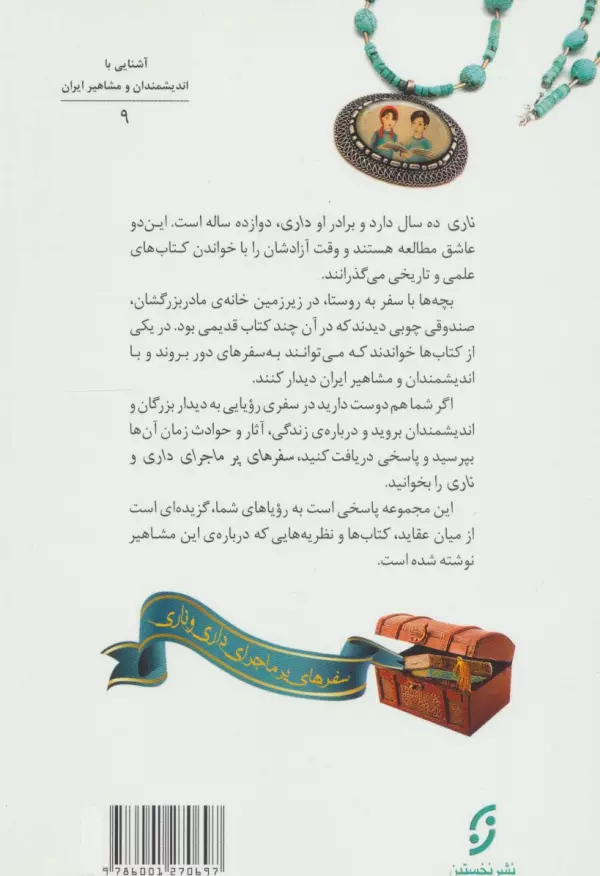 آشنایی با
اندیشمندان و مشاهیر ایران
۹
ناری ده سال دارد و برادر او داری، دوازده ساله است. این‌دو
عاشق مطالعه هستند و وقت آزادشان را با خواندن کتاب‌های
علمی و تاریخی می‌گذرانند.
بچه‌ها با سفر به روستا، در زیرزمین خانه‌ی مادربزرگشان،
صندوقی چوبی دیدند که در آن چند کتاب قدیمی بود. در یکی
از کتاب‌ها خواندند که می‌توانند به‌سفرهای دور بروند و با
اندیشمندان و مشاهیر ایران دیدار کنند.
اگر شما هم دوست دارید در سفری رؤیایی به دیدار بزرگان و
اندیشمندان بروید و درباره‌ی زندگی، آثار و حوادث زمان آن‌ها
بپرسید و پاسخی دریافت کنید، سفرهای پر ماجرای داری و
ناری را بخوانید.
این مجموعه پاسخی است به رؤیاهای شما، گزیده‌ای است
از میان عقاید، کتاب‌ها و نظریه‌هایی که درباره‌ی این مشاهیر
نوشته شده است.
سفرهای پر ماجرای داری و ناری
9 786001 270697
نشر نخستین